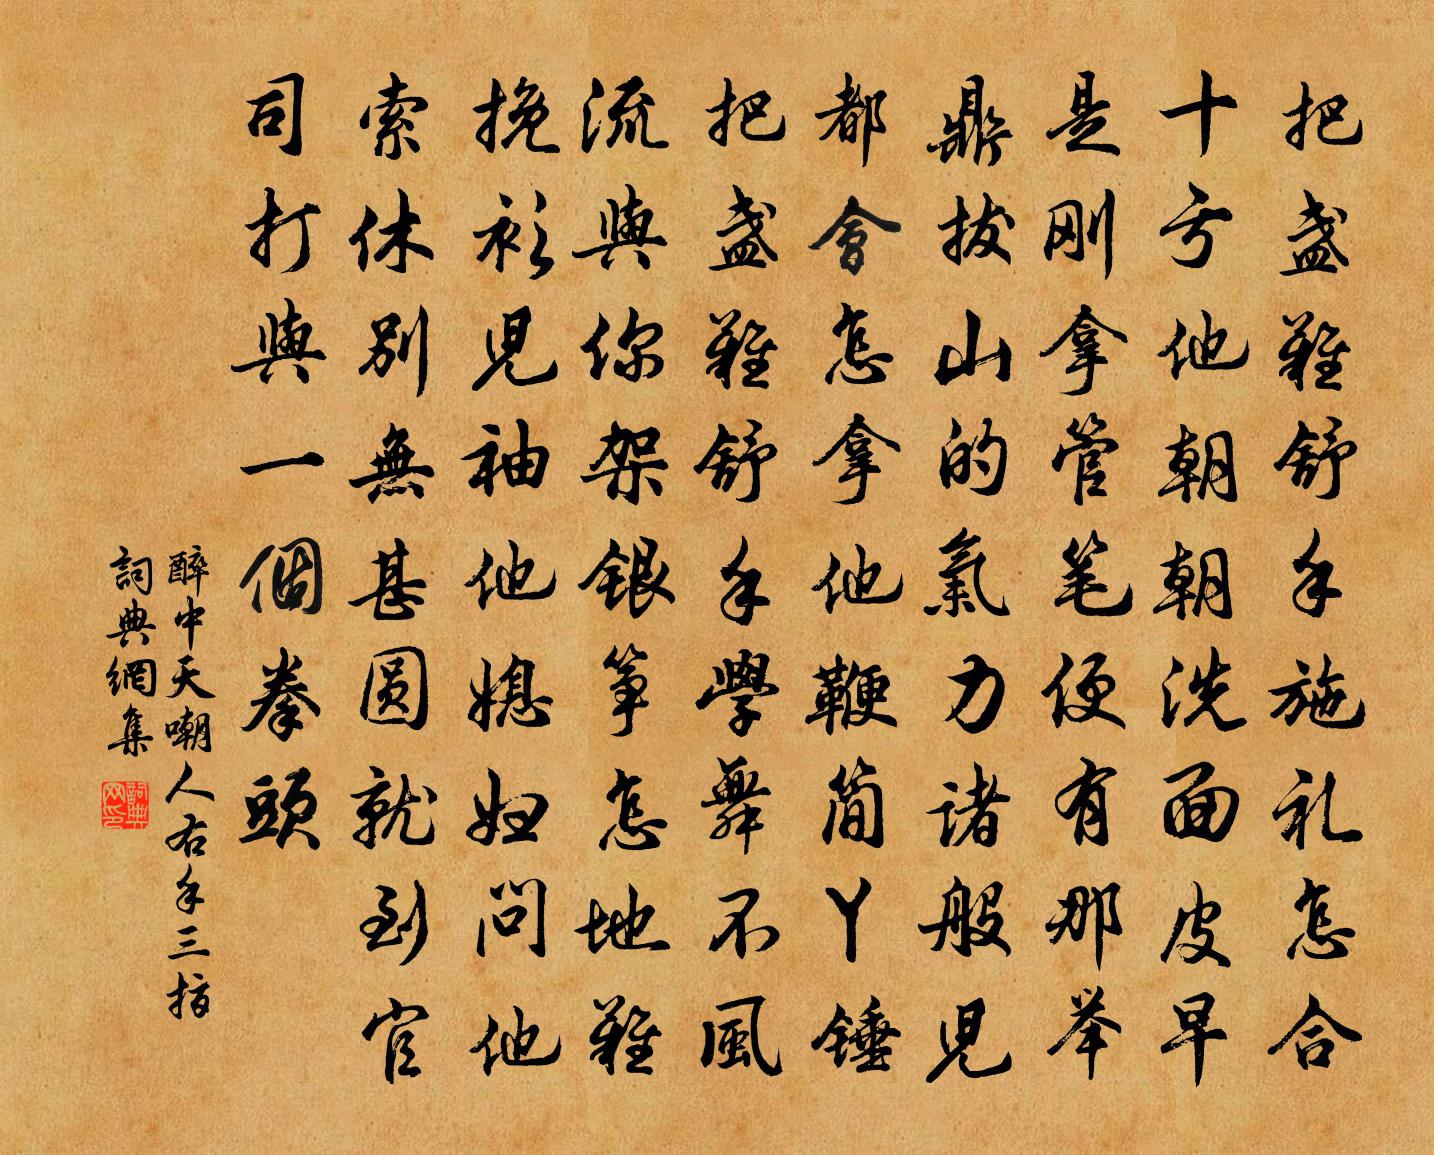 把盏難舒手施礼怎合
十亏他朝朝洗面皮早
是刚拿管笔便有那举
鼎拔山的氣力诸般児
都會怎拿他鞭简丫锤
把盏難舒手學舞不風
流與你架銀筝怎地難
挽衫児袖他媳妇問他
索休别無甚圆就到官
司打與一個拳頭
醉中天嘲人右手三指
詞典網集
詞典网印